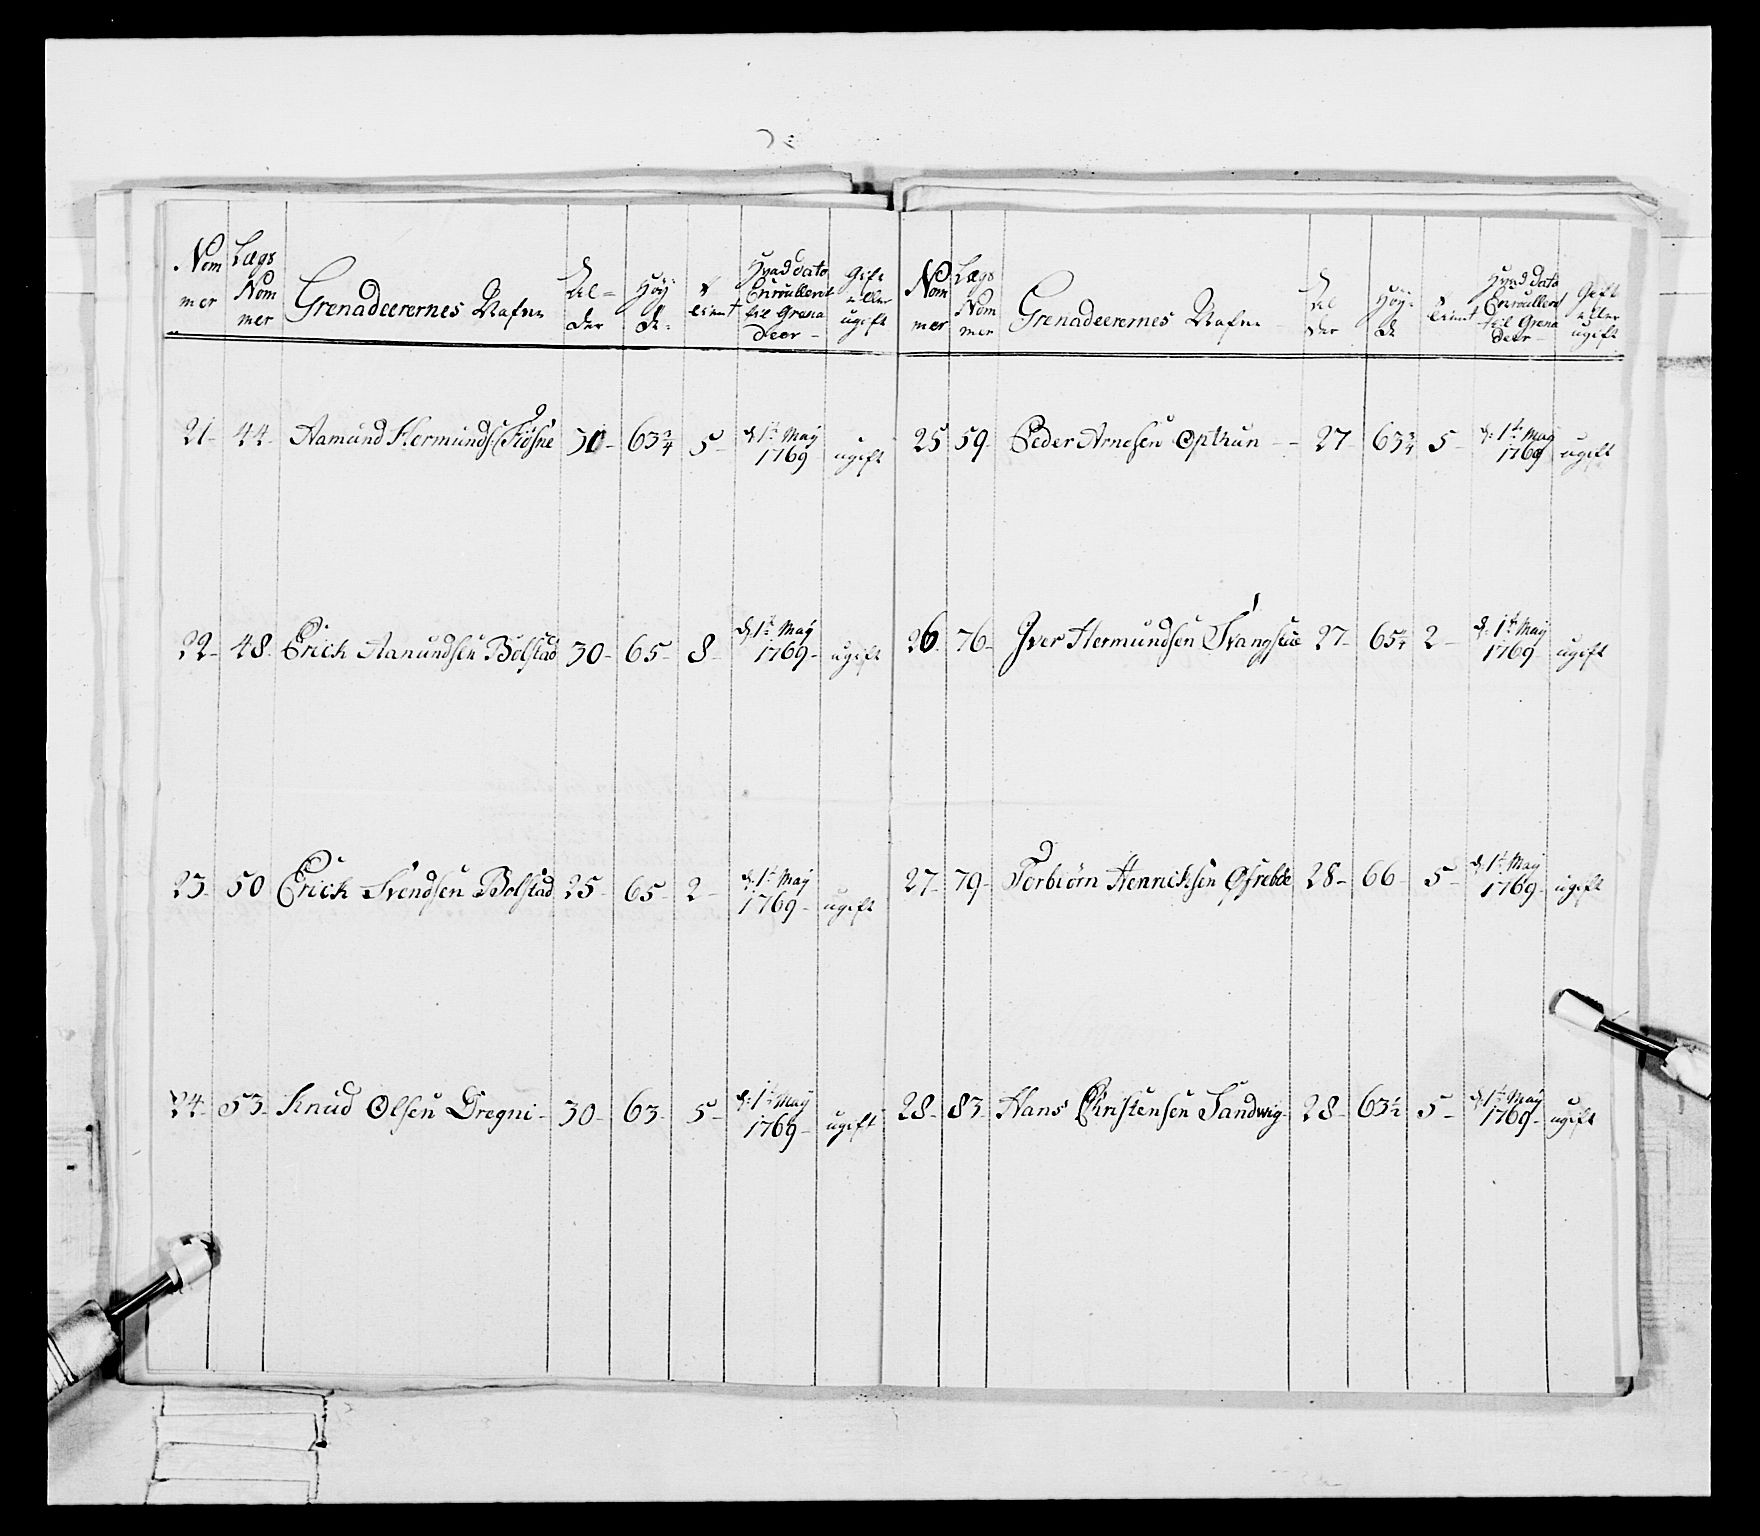 Nom mer | Lægs Nom mer | Grenadeerernes Nafne | Al= der | Höÿ de | tient | Hvad dato Enroullerit til Grena deer | Gift eller ugift
21- | 44- | Aamund Hermunds: Fiøsne | 30- | 63 3/4 | 5- | d: 1te Maÿ 1769 | ugift
22- | 48- | Erick Aamundsen Bolstad | 30- | 65- | 8- | d: 1te Maÿ 1769- | ugift
23- | 50 | Erick Svendsen Bolstad | 25- | 65- | 2- | d: 1te Maÿ 1769- | ugift
24- | 53- | Knud Olsen Dregni- | 30- | 63- | 5- | d: 1te Maÿ 1769- | ugift
Nom mer | Lægs Nom mer | Grenadeerernes Nafne | Al der | Höÿ= de | tient | Hvad dato Enroullerit til Grena deer- | Gift eller ugift
25 | 59- | Peder Arnesen Opthun - - | 27- | 63 3/4 | 5- | d: 1te Maÿ 1769 | ugift
26 | 76- | Iver Hermundsen | 27- | 65 1/2 | 2- | d: 1te Maÿ 1769- | ugift
27- | 79- | Torbiørn Henricksen Øfrebøe | 28- | 66- | 5- | d: 1te Maÿ 1769- | ugift
28- | 83- | Hans Christensen Sandwig- | 28- | 63 1/2 | 5- | d: 1te Maÿ 1769- | ugift